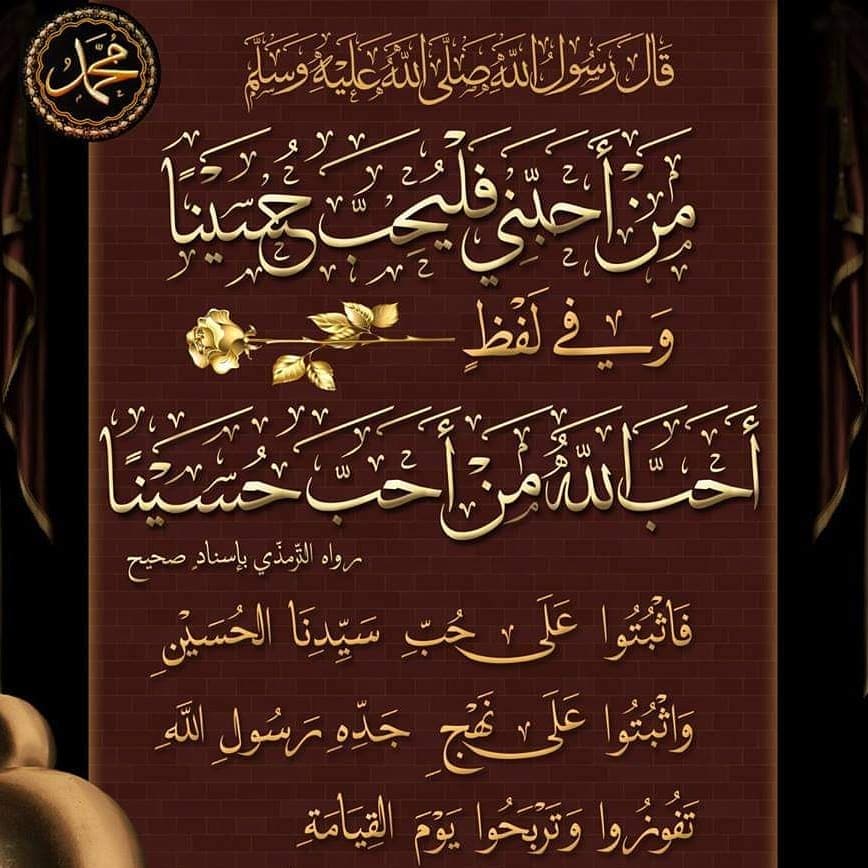 محمد
قَالَ رَسُولُ اللهِ صَلَّى اللهُ عَلَيْهِ وَسَلَّمَ
مَنْ أَحَبَّنِي فَلْيُحِبَّ حُسَيْنًا
وَفِي لَفْظٍ
أَحَبَّ اللهُ مَنْ أَحَبَّ حُسَيْنًا
رواه الترمذّي بإسنادٍ صحيح
فَاثْبُتُوا عَلَى حُبِّ سَيِّدِنَا الحُسَيْنِ
وَاثْبُتُوا عَلَى نَهْجِ جَدِّهِ رَسُولِ اللَّهِ
تَفُوزُوا وَتَرْبَحُوا يَوْمَ القِيَامَةِ